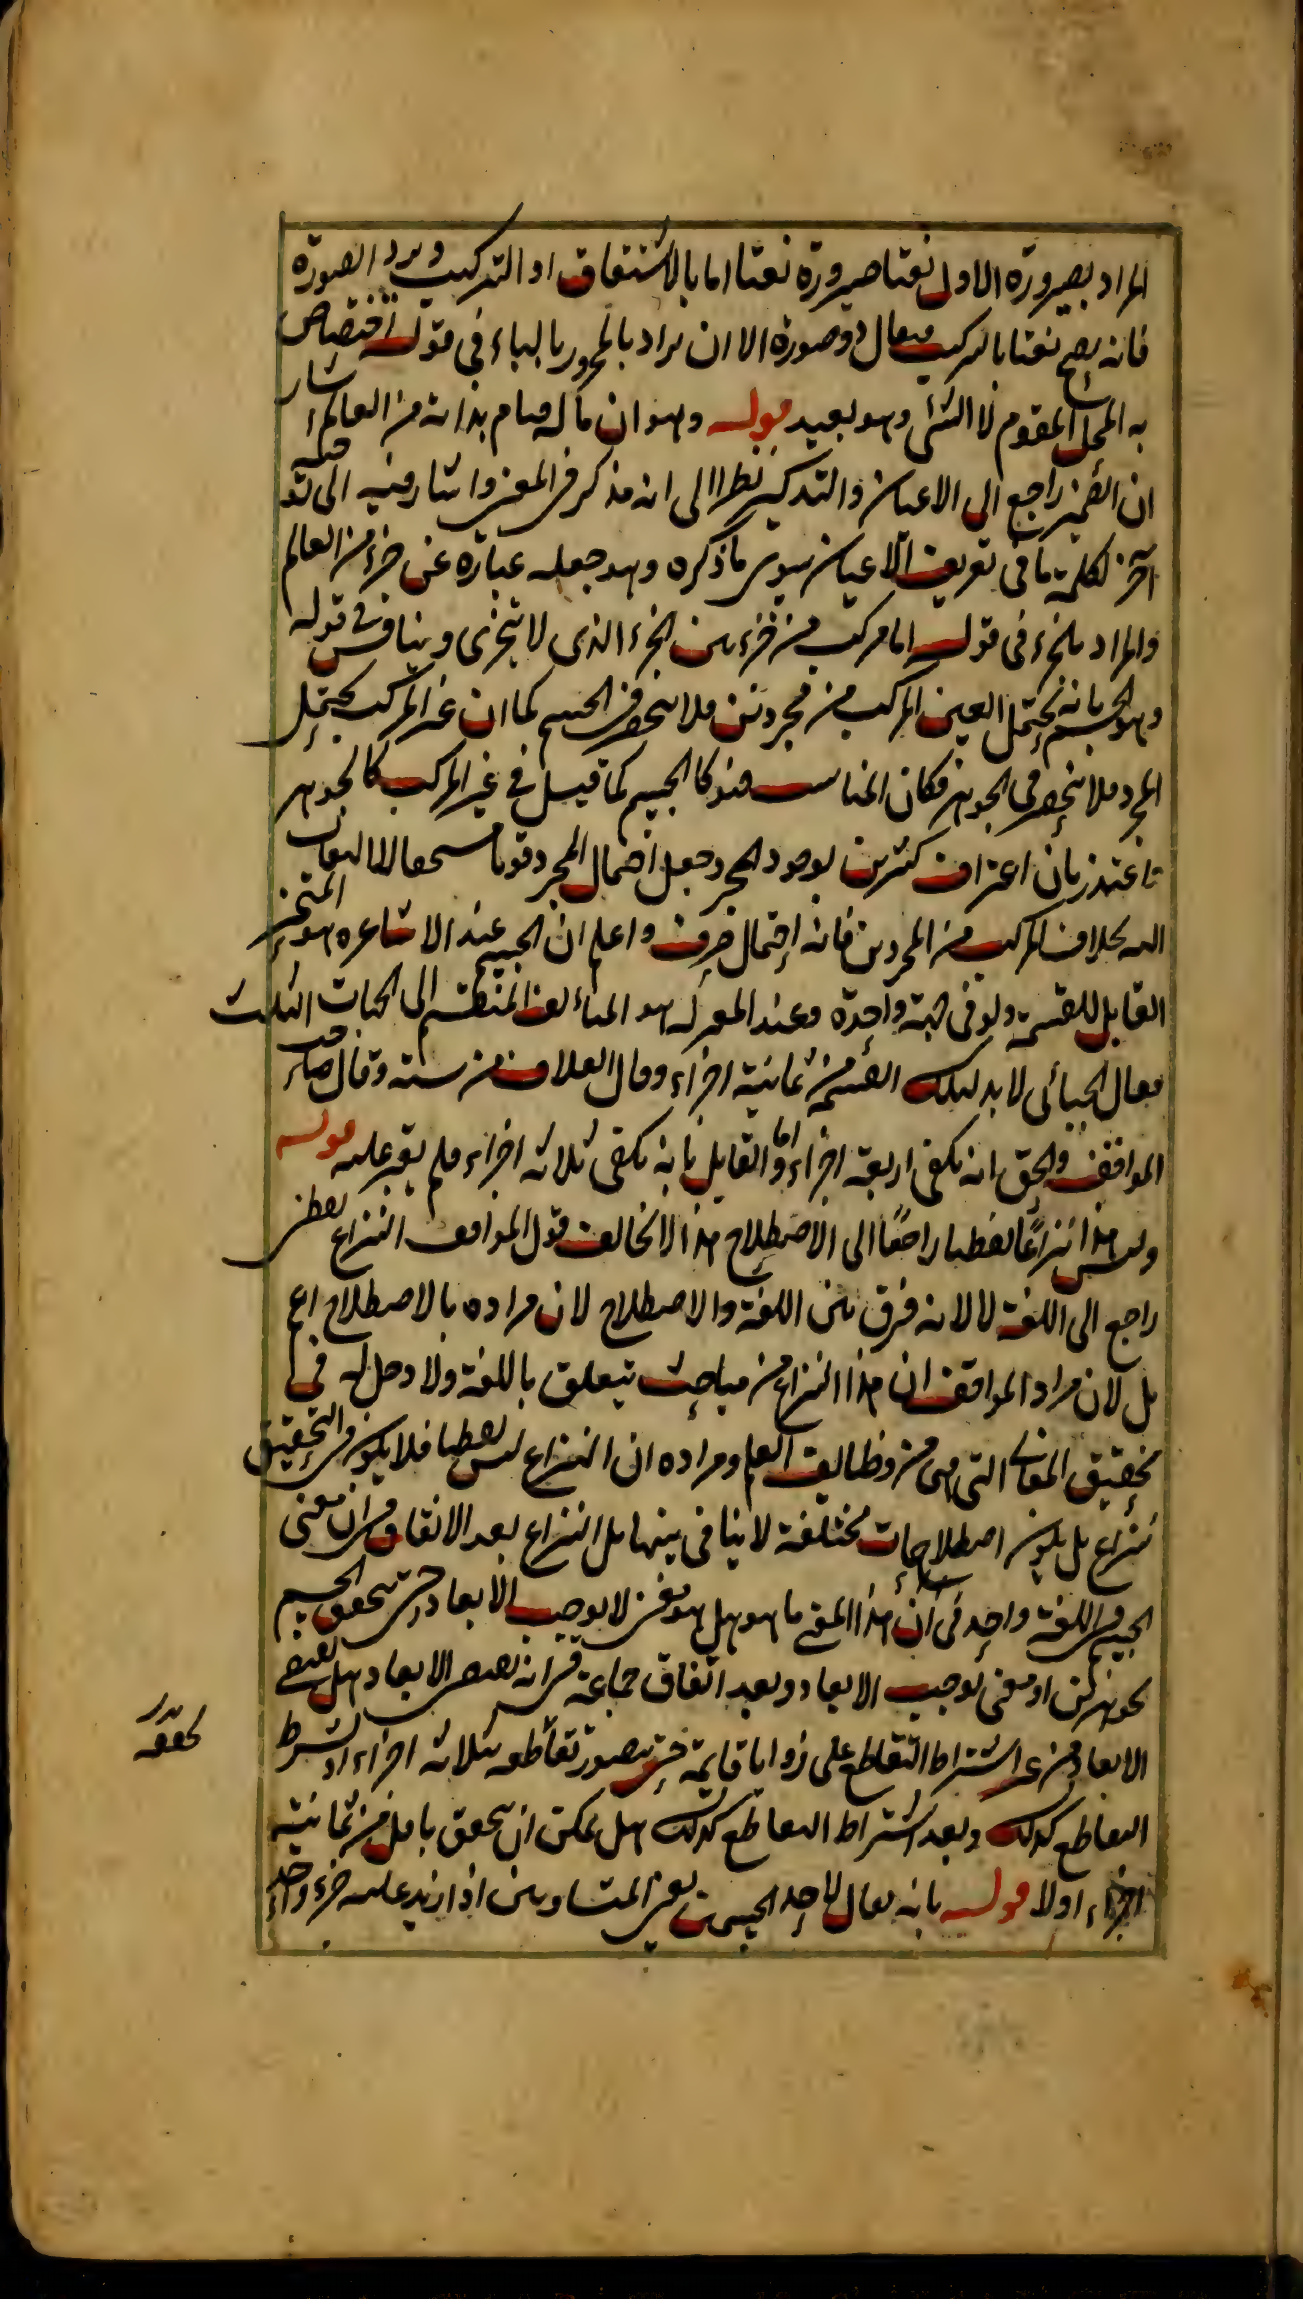 المراد بصيرورة الاول نعتا صيرورة نعتا اما بالاشتقاق او التركيب ويرد الصورة
فانه يصح نعتا بالتركيب فيقال ذو صورة الا ان يراد بالمجرور بالباء في قوله اختصاص
به المحل المقوم لا الشئ وهو بعيد قوله وهو ان ما له قيام بذاته من العالم اشار
ان الضمير راجع الى الاعيان والتذكير نظرا الى انه مذكر في المعنى واشار فيه الى توجيه
آخر لكلمة ما في تعريف الاعيان سوى ما ذكره وهو جعله عبارة عن جزء من العالم
والمراد بالجزء في قوله اما مركب من جزءين الجزء الذي لا يتجزى ويناقش في قوله
وهو الجسم بانه يحتمل العين المركب من مجردين فلا ينحصر في الجسم كما ان غير المركب يحتمل
المجرد فلا ينحصر في الجوهر فكان المناسب هنو كالجسم كما قيل في غير المركب كالجوهر
فاعتذر بان اعتراف كثيرين بوجود المجرد جعل احتمال المجرد قويا مستحقا للالتفات
اليه بخلاف المركب من المجردين فانه احتمال صرف واعلم ان الجسم عند الاشاعره هو المتحيز
القابل للقسمة ولو في جهة واحدة وعند المعتزله هو المتألف المنقسم الى الجهات الثلث
فقال الجبائى لا بد لتلك القسمة من ثمانية اجزاء وقال العلاف من ستة وقال صاحب
المواقف والحق انه يكفى اربعة اجزاء واما القايل بانه يكفى ثلاثه اجزاء فلم يعثر عليه قوله
وليس هذا نزاعا لفظيا راجعا الى الاصطلاح هذا لا يخالف قول المواقف النزاع لفظى
راجع الى اللغة لا لانه فرق بين اللغة والاصطلاح لان مراده بالاصطلاح اعم
بل لان مراد المواقف ان هذا النزاع من مباحث تتعلق باللغة ولا دخل له في
تحقيق المعانى التى هى من وظايف العلم ومراده ان النزاع ليس لفظيا فلا يكون في التحقيق
نزاع بل يكون اصطلاحات مختلفة لا ينافى بينها بل النزاع بعد الاتفاق في ان معنى
الجسم في اللغة واحد في ان هذا المعنى ما هو هل هو معنى لا يوجب الابعاد حتى يتحقق الجسم
بجوهرين او معنى يوجب الابعاد وبعد اتفاق جماعة في انه يقتضى الابعاد هل يقتضى
الابعاد من غير اشتراط التقاطع على زوايا قايمة حتى يتصور تقاطعه بثلاثه اجزاء او بشرط
التقاطع كذلك وبعد اشتراط التقاطع كذلك هل يمكن ان يتحقق باقل من ثمانية
اجزاء اولا قوله بانه يقال لاحد الجسمين يعنى المتساويين اذا زيد عليه جزء واحد